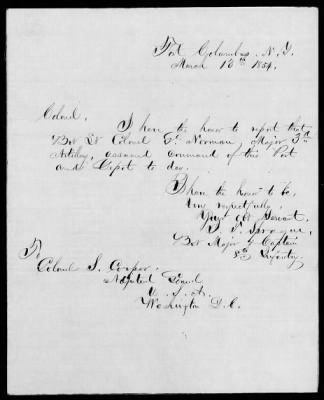 Fort Columbus N.Y.
March 18th 1854.
Colonel,
I have the honor to report that
Bvt Lt Colonel G. Norman, Major 3rd
Artillery, assumed command of this Post
and Depot to day.
I have the honor to be,
Very respectfully,
Your obt Servant,
J. T. Sprague,
Bvt Major & Captain
8th Infantry
To
Colonel S. Cooper,
Adjutant General
U. S. A.
Washington D.C.